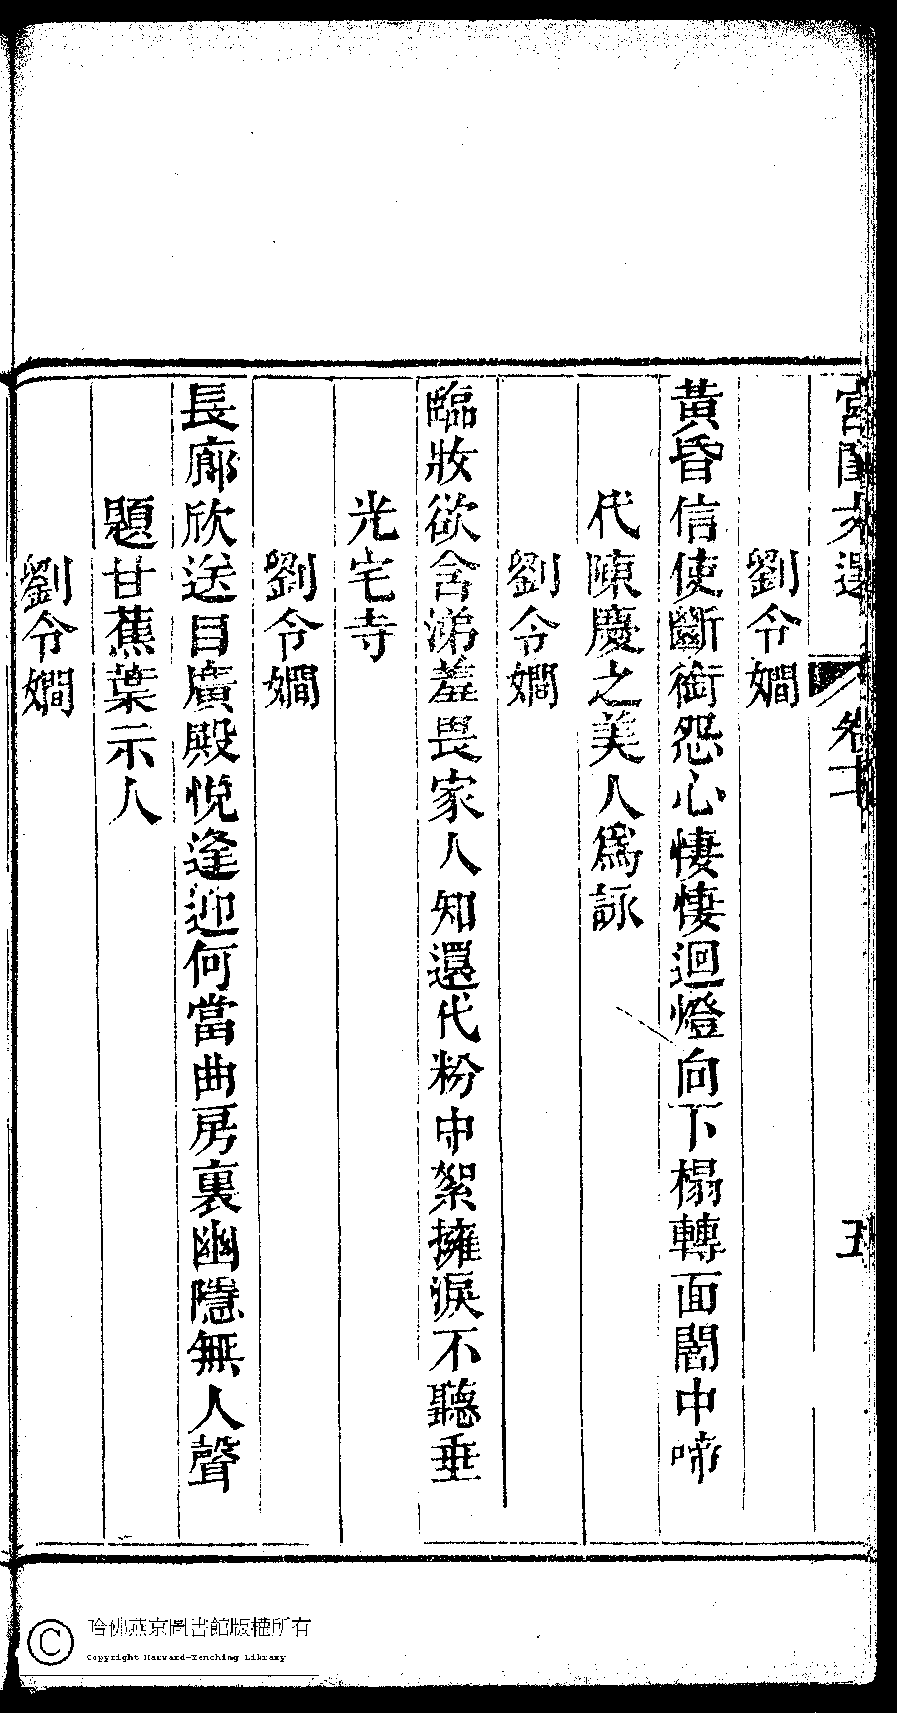 宮閨文選 卷十 五
劉令嫺
黃昏信使斷銜怨心悽悽迴燈向下榻轉面闇中啼
代陳慶之美人爲詠
劉令嫺
臨妝欲含涕羞畏家人知還代粉中絮擁淚不聽垂
光宅寺
劉令嫺
長廊欣送目廣殿悅逢迎何當曲房裏幽隱無人聲
題甘蕉葉示人
劉令嫺
哈佛燕京圖書館版權所有
Copyright Harvard-Yenching Library